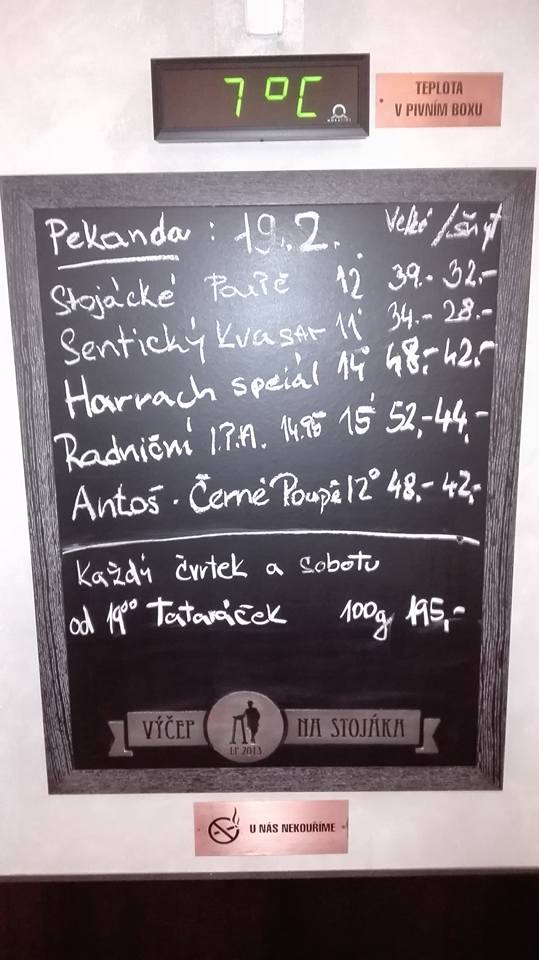 7°C
TEPLOTA
V PIVNÍM BOXU
Pekanda : 19.2. Velké / šnyt
Stojácké Poupě 12° 39.- 32.-
Sentický Kvasar 11° 34.- 28.-
Harrach speciál 14° 48,- 42,-
Radniční I.P.A. 14.95 15° 52,- 44,-
Antoš . Černé Poupě 12° 48,- 42,-
Každý čvrtek a sobotu
od 19⁰⁰ Tataráček 100g 195,-
VÝČEP NA STOJÁKA
LP 2013
U NÁS NEKOUŘÍME